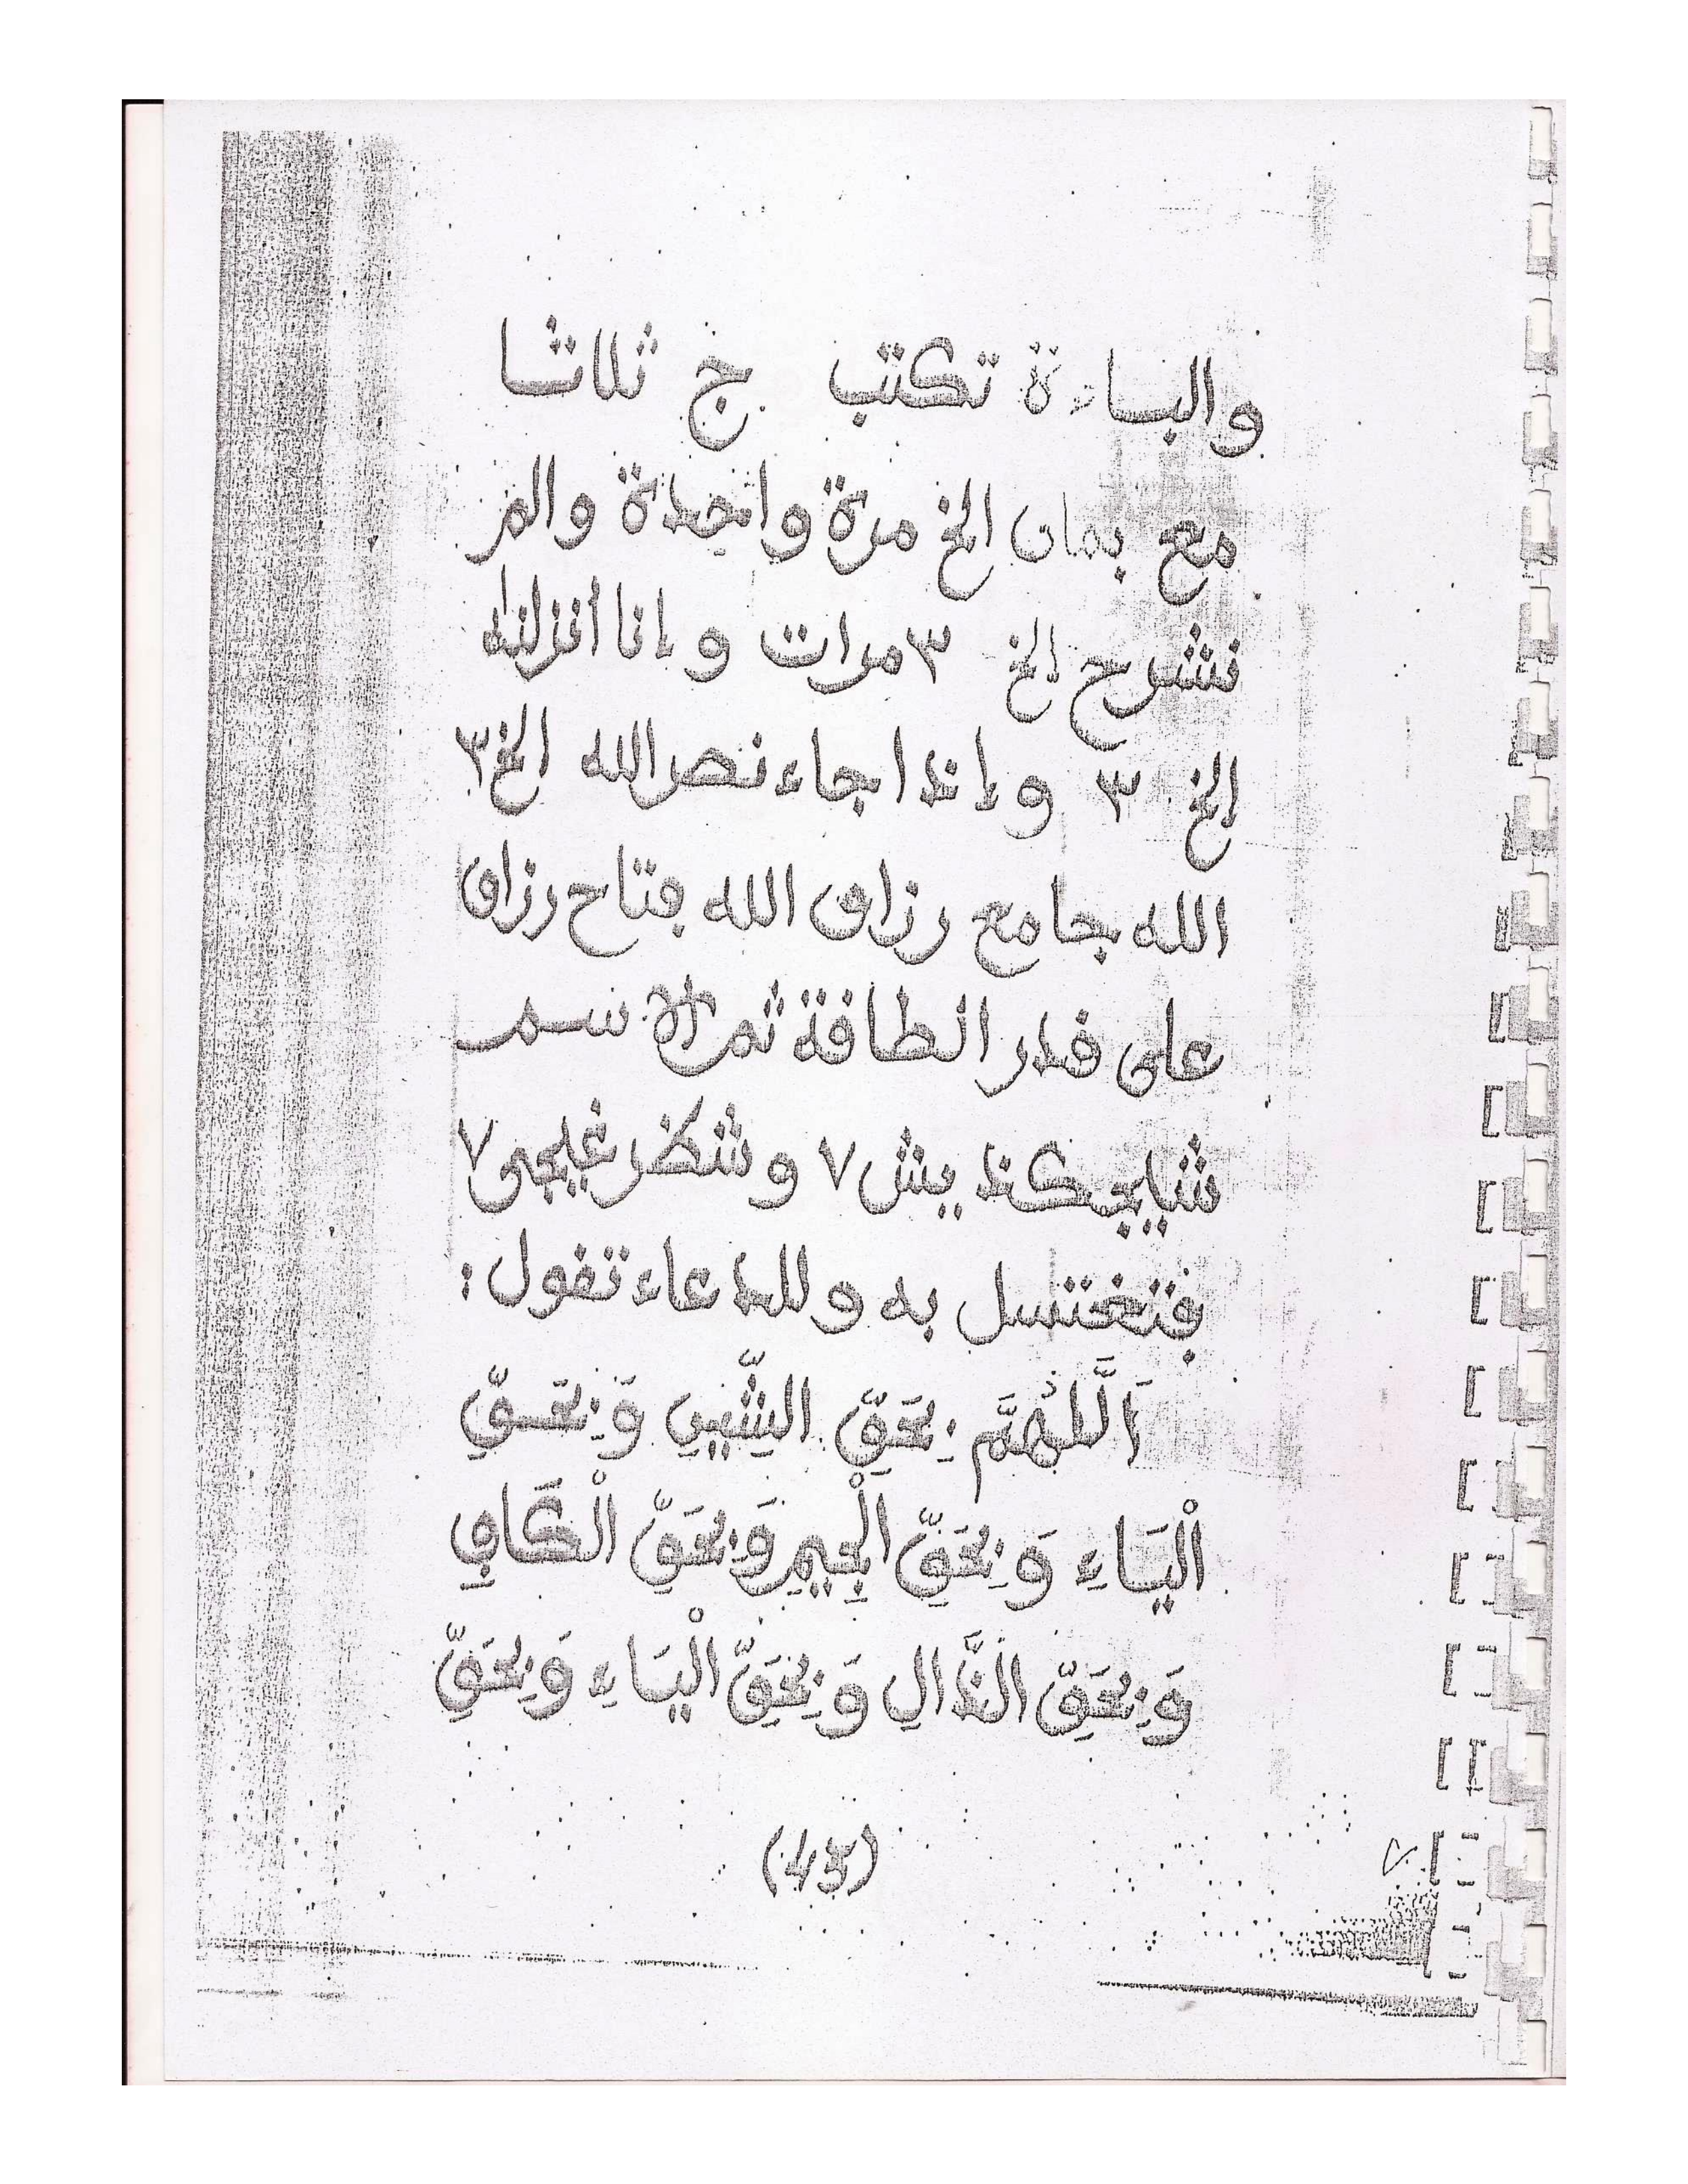 والبساءة تكتب ج ثلاثا
مع بمان الخ مرة واحدة والم
نشرح الخ ٣ مرات و إنا أنزلنه
الخ ٣ و إذا جاء نصر الله الخ ٣
الله جامع رزاق الله فتاح رزاق
على قدر الطاقة ثم سم
شيايجكذ يش ٧ و شكظر غيجى ٧
فتغتسل به و للدعاء تقول :
اَللَّهُمَّ بِحَقِّ الشِّينِ وَ بِحَقِّ
الْيَاءِ وَ بِحَقِّ الْجِيمِ وَ بِحَقِّ الْكَافِ
وَ بِحَقِّ الذَّالِ وَ بِحَقِّ الْيَاءِ وَ بِحَقِّ
(43)